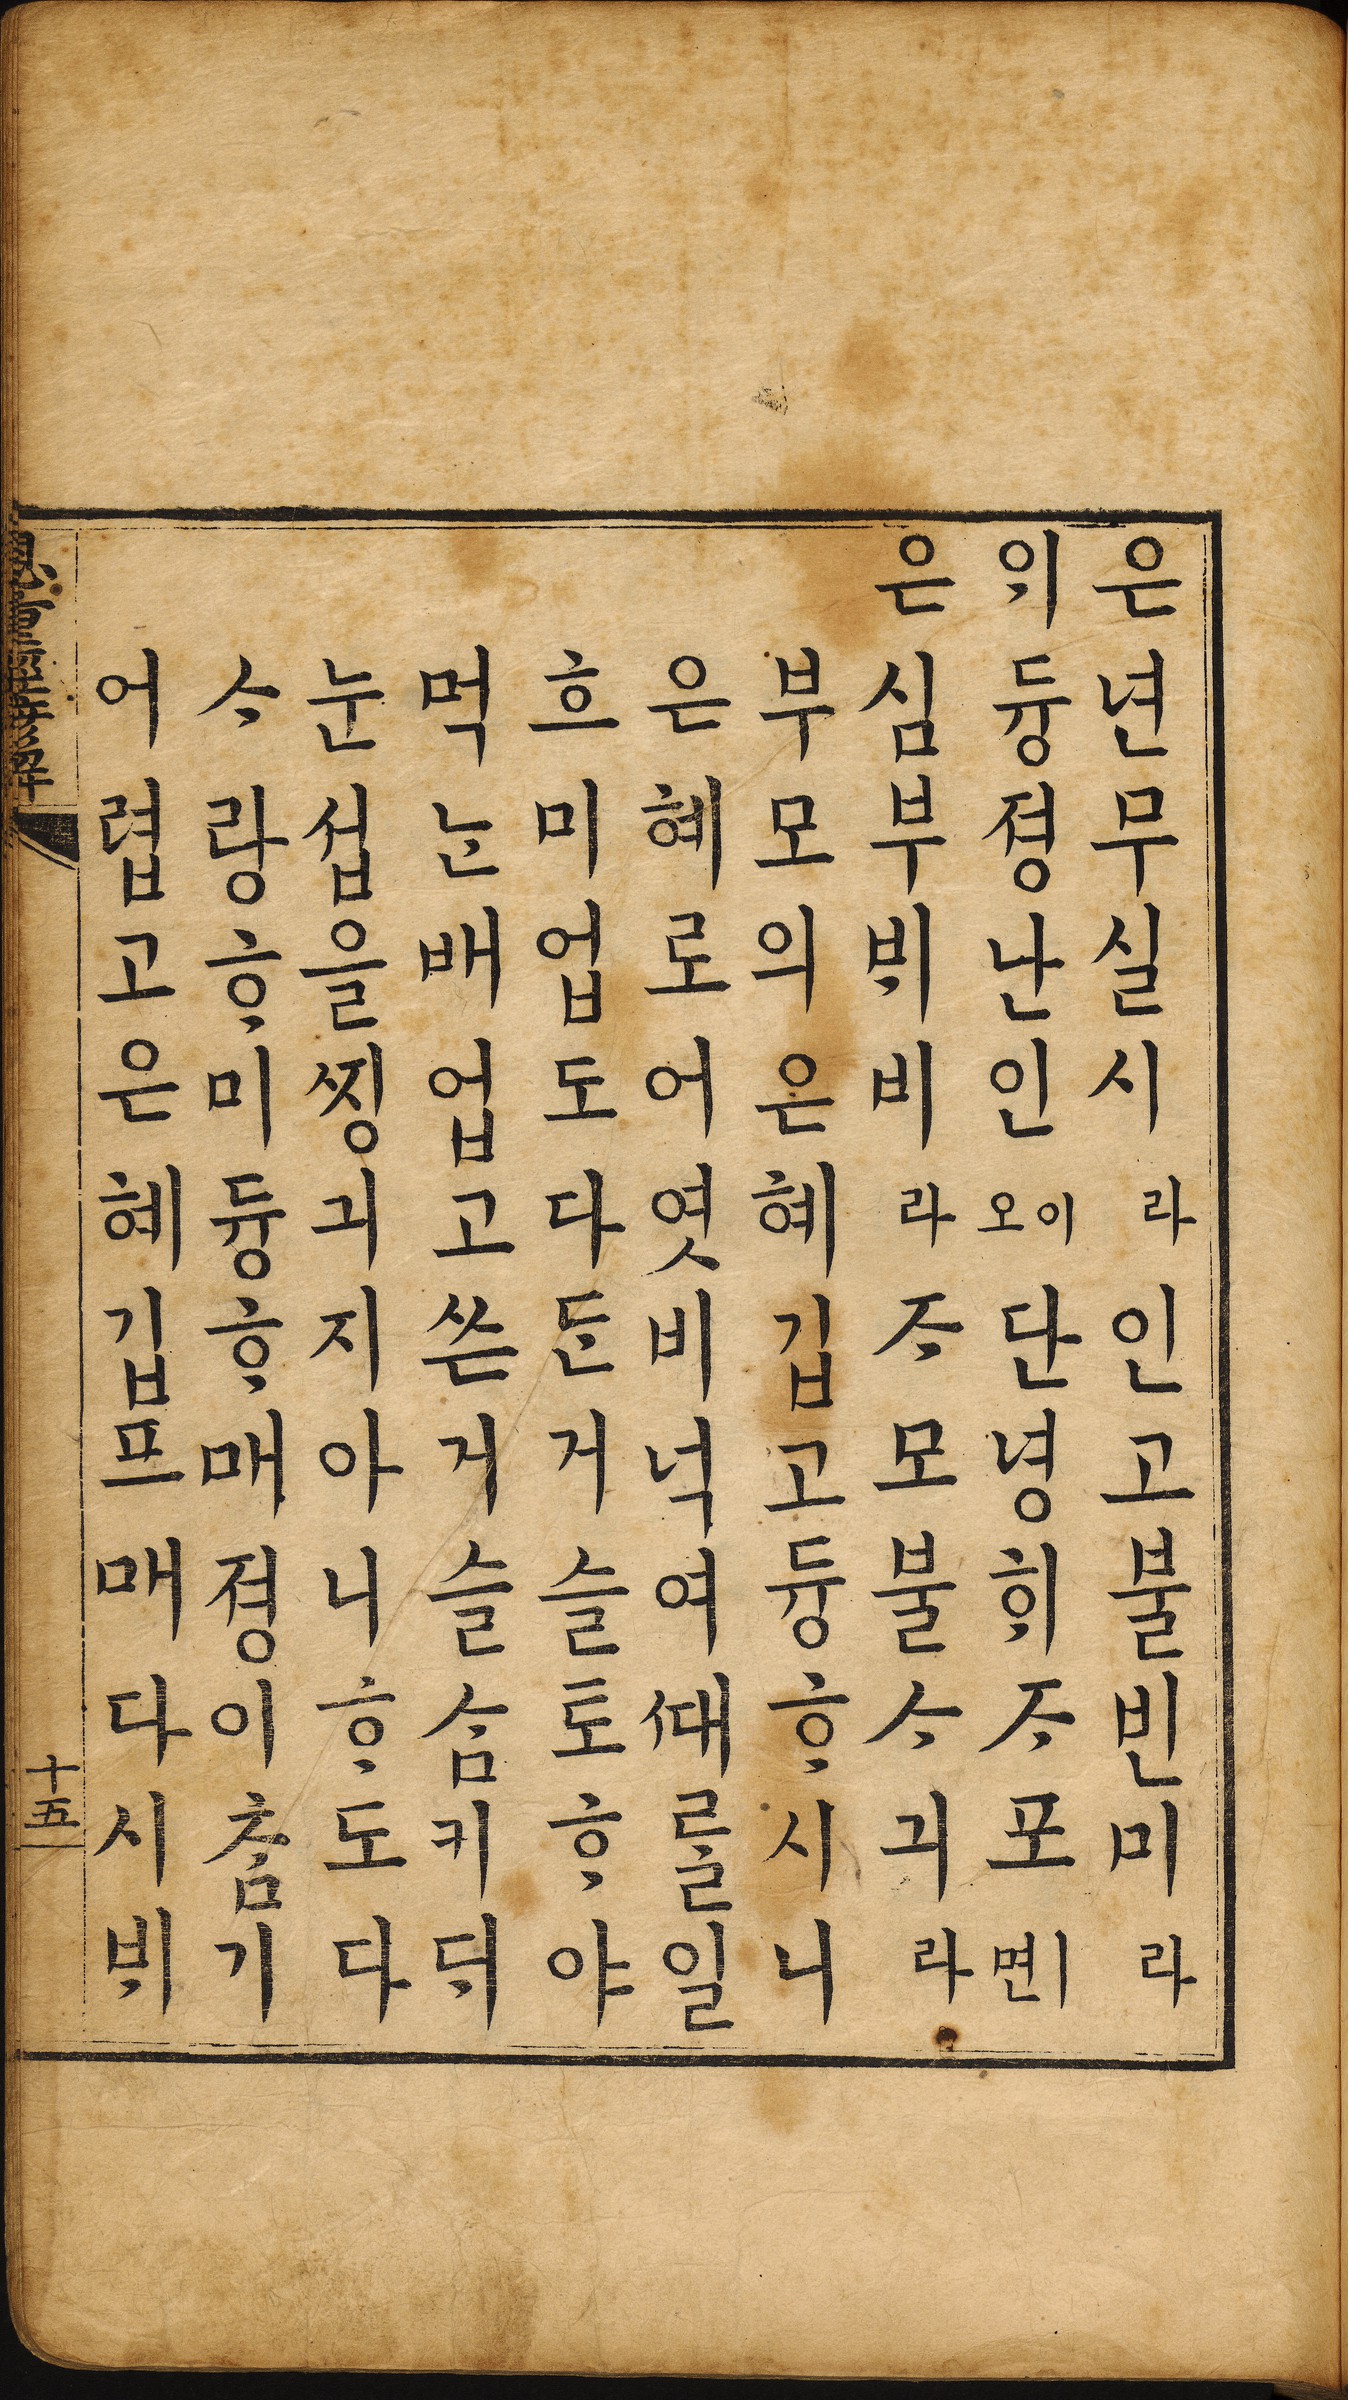 은년무실시라인고불빈미라
ᄋᆡ듕졍난인이오단녕ᄒᆡᄌᆞ포ㅣ면
은심부ᄇᆡ비라ᄌᆞ모불ᄉᆞ긔라
부모의은혜깁고듕ᄒᆞ시니
은혜로어엿비넉여ᄯᅢ를일
흐미업도다ᄃᆞᆫ거슬토ᄒᆞ야
먹ᄂᆞᆫ배업고쓴거슬ᄉᆞᆷ키ᄃᆡ
눈섭을찡긔지아니ᄒᆞ도다
ᄉᆞ랑ᄒᆞ미듕ᄒᆞ매졍이ᄎᆞᆷ기
어렵고은혜깁프매다시ᄇᆡ
十五